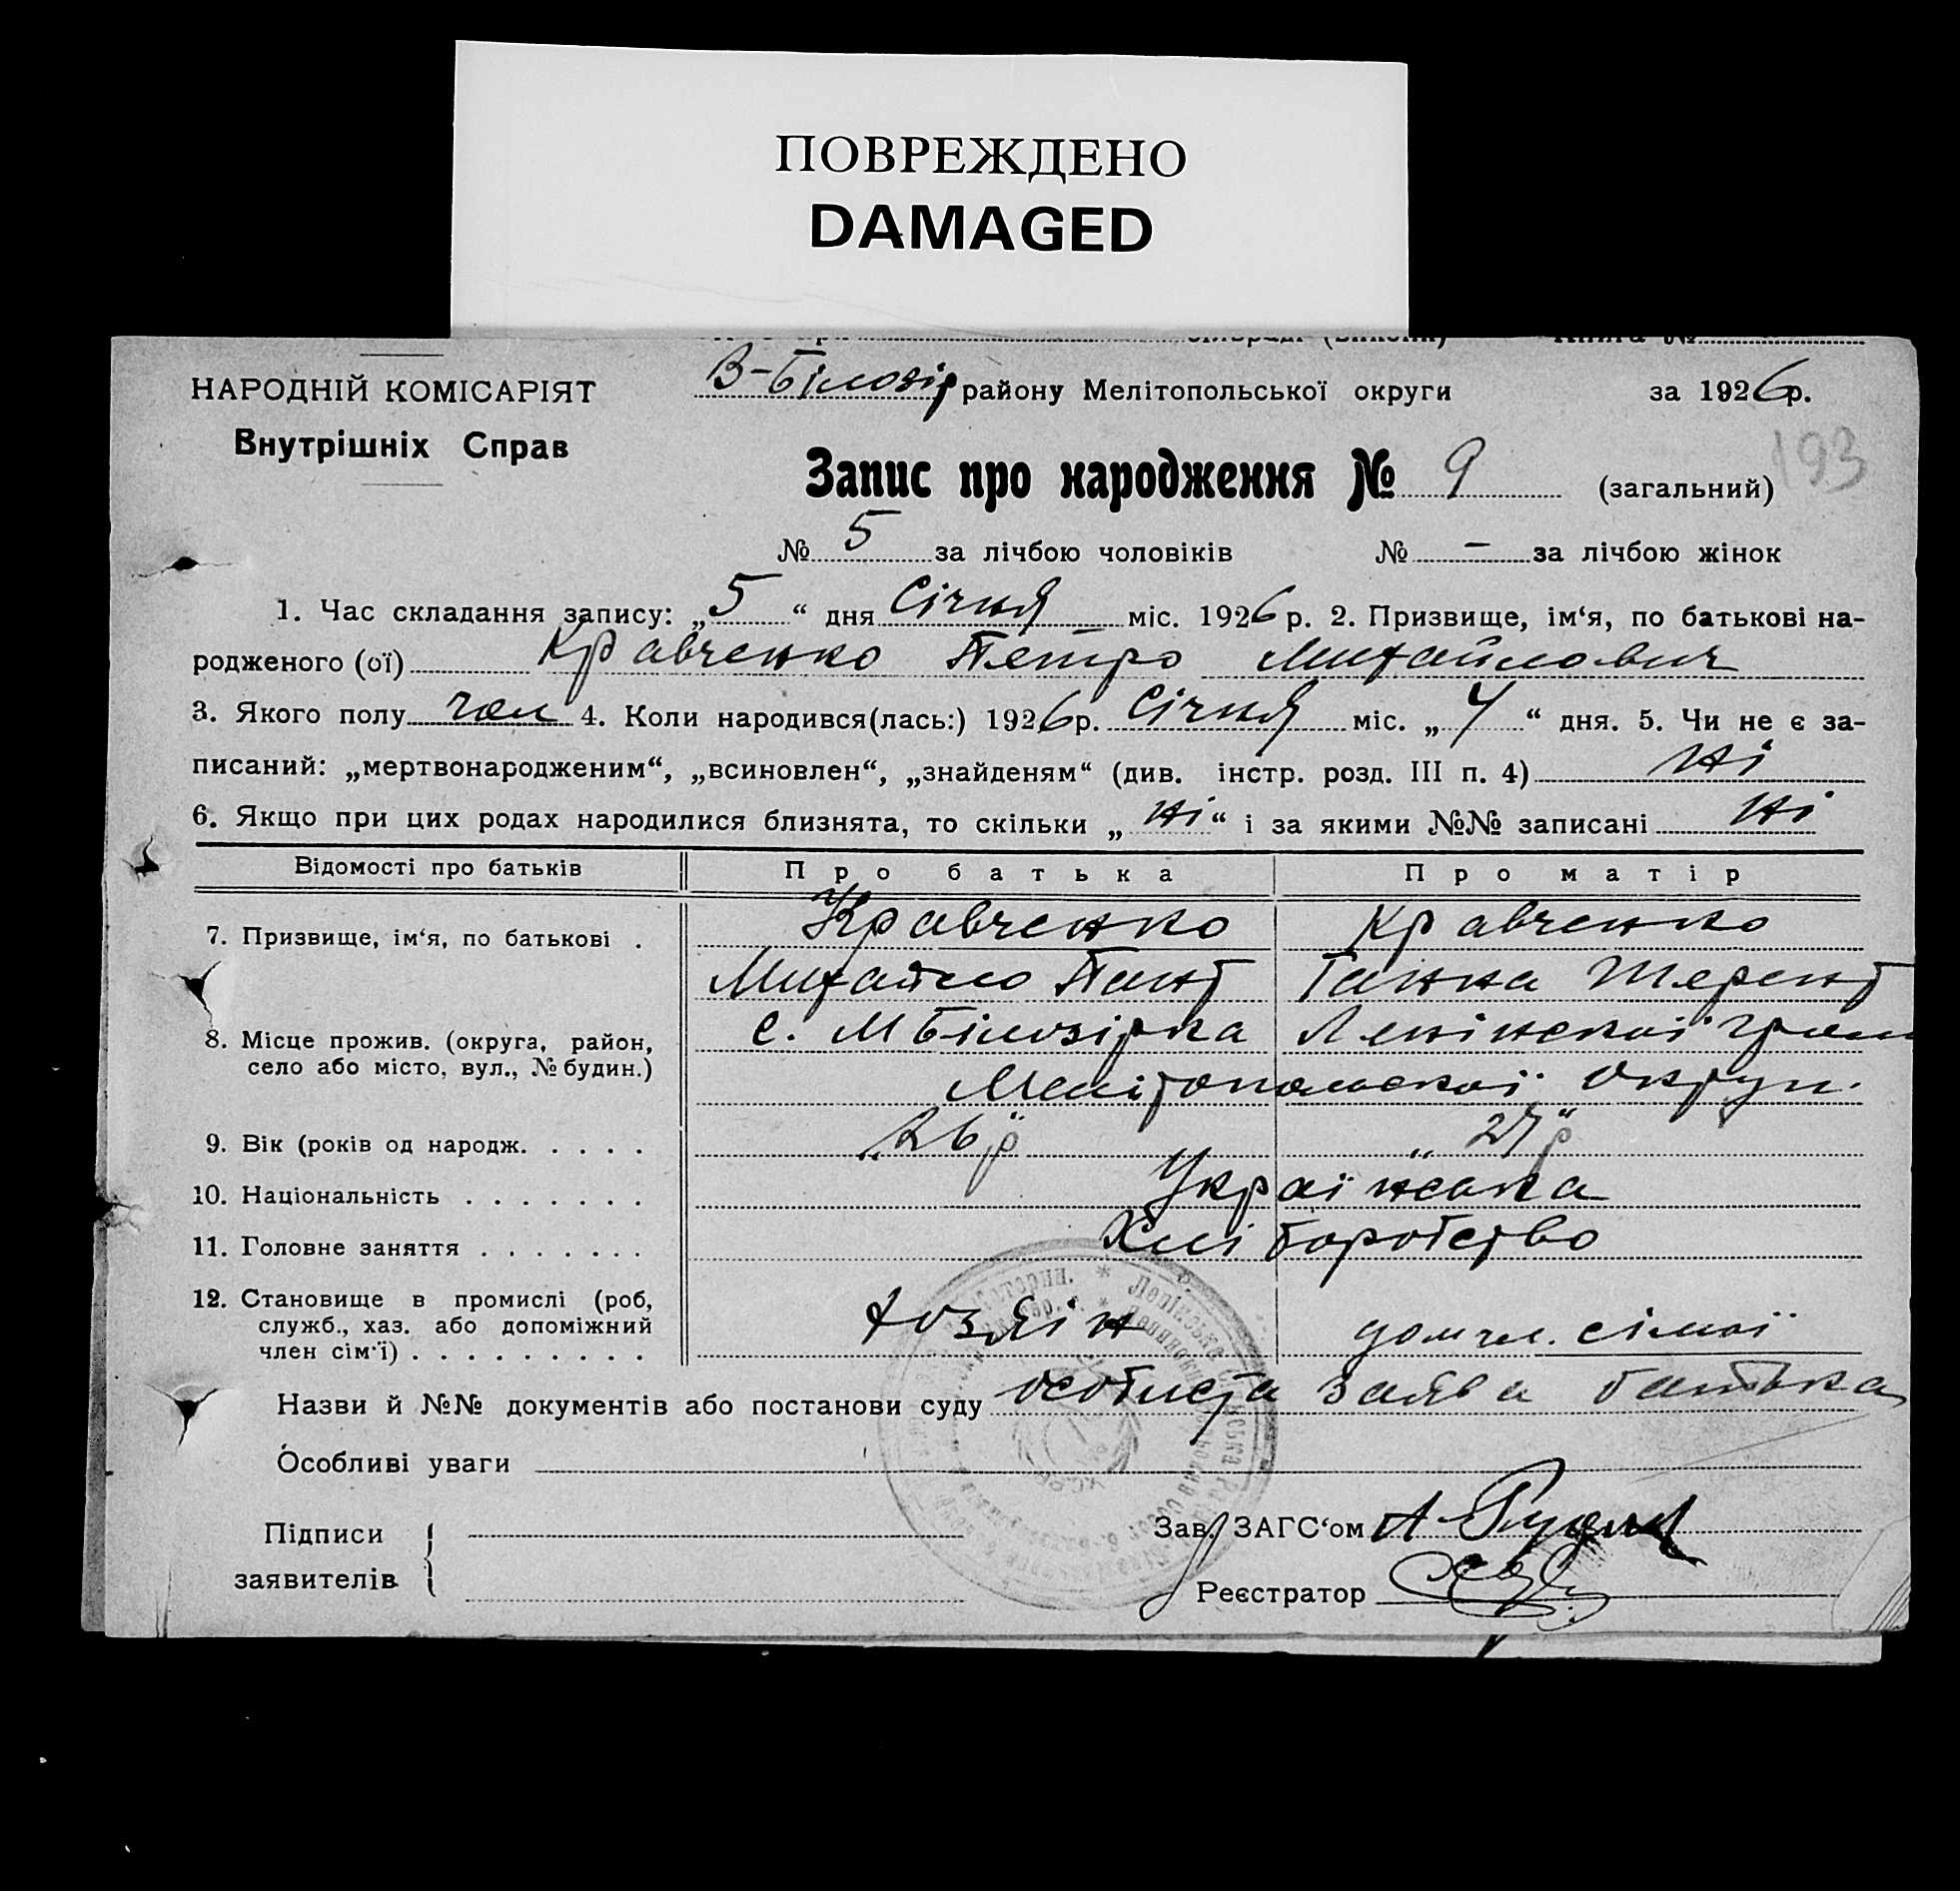 ПОВРЕЖДЕНО
DAMAGED
НАРОДНІЙ КОМІСАРІЯТ
Внутрішніх Справ
В-Білозір району Мелітопольської округи за 1926 р.
193
Запис про народження № 9 (загальний)
№ 5 за лічбою чоловіків № - за лічбою жінок
1. Час складання запису: „5“ дня Січня міс. 1926 р. 2. Призвище, ім‘я, по батькові на-
родженого (ої) Кравченко Петро Михайлович
3. Якого полу чол 4. Коли народився(лась:) 1926 р. Січня міс. „4“ дня. 5. Чи не є за-
писаний: „мертвонародженим“, „всиновлен“, „знайденям“ (див. інстр. розд. III п. 4) Ні
6. Якщо при цих родах народилися близнята, то скільки „Ні“ і за якими №№ записані Ні
Відомості про батьків Про батька Про матір
7. Призвище, ім‘я, по батькові . Кравченко Кравченко
Михайло Пант Ганна Терент
8. Місце прожив. (округа, район, село або місто, вул., № будин.) с. М Білозірка Ленінскої
Мелітопольскої Округи.
9. Вік (років од народж. . . . . „26 р“ „27 р“
10. Національність . . . . . . . Українська
11. Головне заняття . . . . . . . Хліборобство
12. Становище в промислі (роб, служб., хаз. або допоміжний член сім‘ї) . . . . . . . . . хозяін чл. сімої
Назви й №№ документів або постанови суду особиста заява батька
Особливі уваги
Підписи
заявителів
Зав. ЗАГС‘ом
Реєстратор